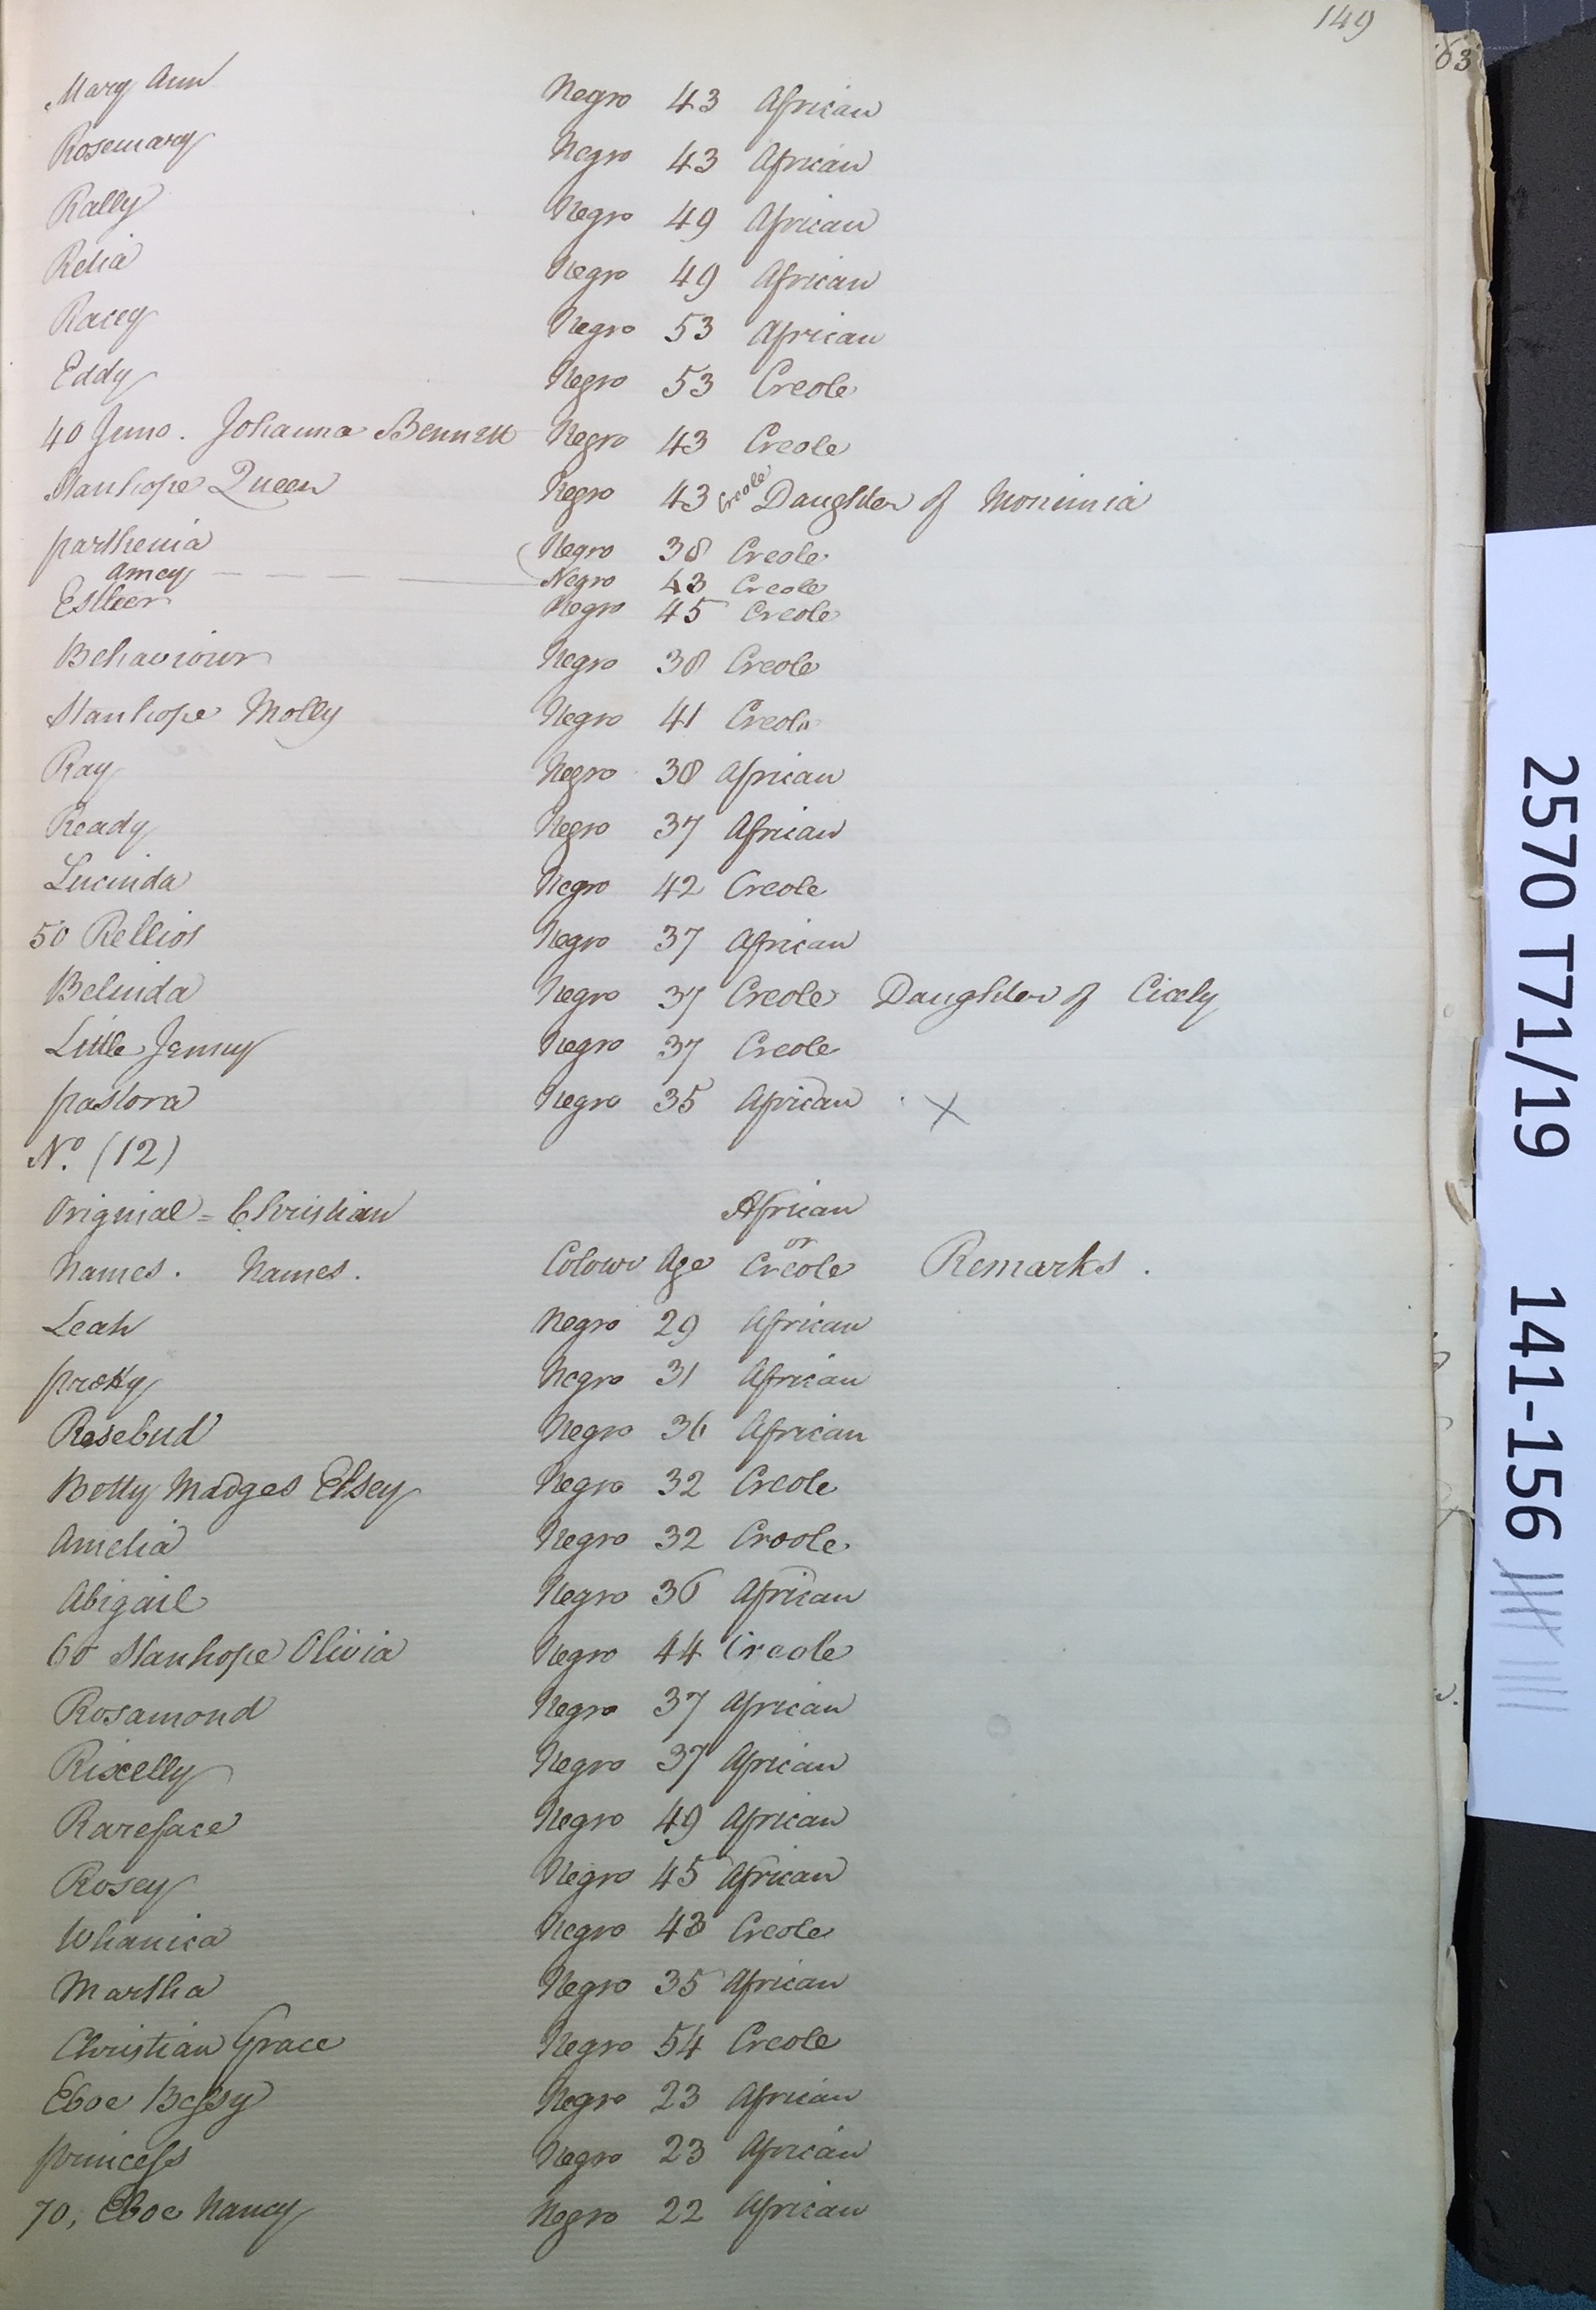 149
63
Mary Ann Negro 43 African
Rosemary Negro 43 African
Rally Negro 49 African
Relia Negro 49 African
Racey Negro 53 African
Eddy Negro 53 Creole
40 Juno. Johanna Bennett Negro 43 Creole
Stanhope Queen Negro 43 Creole Daughter of Monimia
parthenia Negro 38 Creole
Amey Negro 43 Creole
Esther Negro 45 Creole
Behaviour Negro 38 Creole
Stanhope Molly Negro 41 Creole
Ray Negro 38 African
Ready Negro 37 African
Lucinda Negro 42 Creole
50 Rellios Negro 37 African
Belinda Negro 37 Creole Daughter of Cicely
Little Jenny Negro 37 Creole
pastora Negro 35 African X
No. (12)
Original = Christian African
or
Names. Names. Colour Age Creole Remarks.
Leah Negro 29 African
Negro 31 African
Rosebud Negro 36 African
Betty Madges Elsey Negro 32 Creole
Amelia Negro 32 Creole
Abigail Negro 36 African
60 Stanhope Olivia Negro 44 Creole
Rosamond Negro 37 African
Rixelly Negro 37 African
Rareface Negro 49 African
Rosey Negro 45 African
Whanica Negro 43 Creole
Martha Negro 35 African
Christian Grace Negro 54 Creole
Eboe Bessy Negro 23 African
princess Negro 23 African
70, Eboe Nancy Negro 22 African
2570 T71/19 141-156